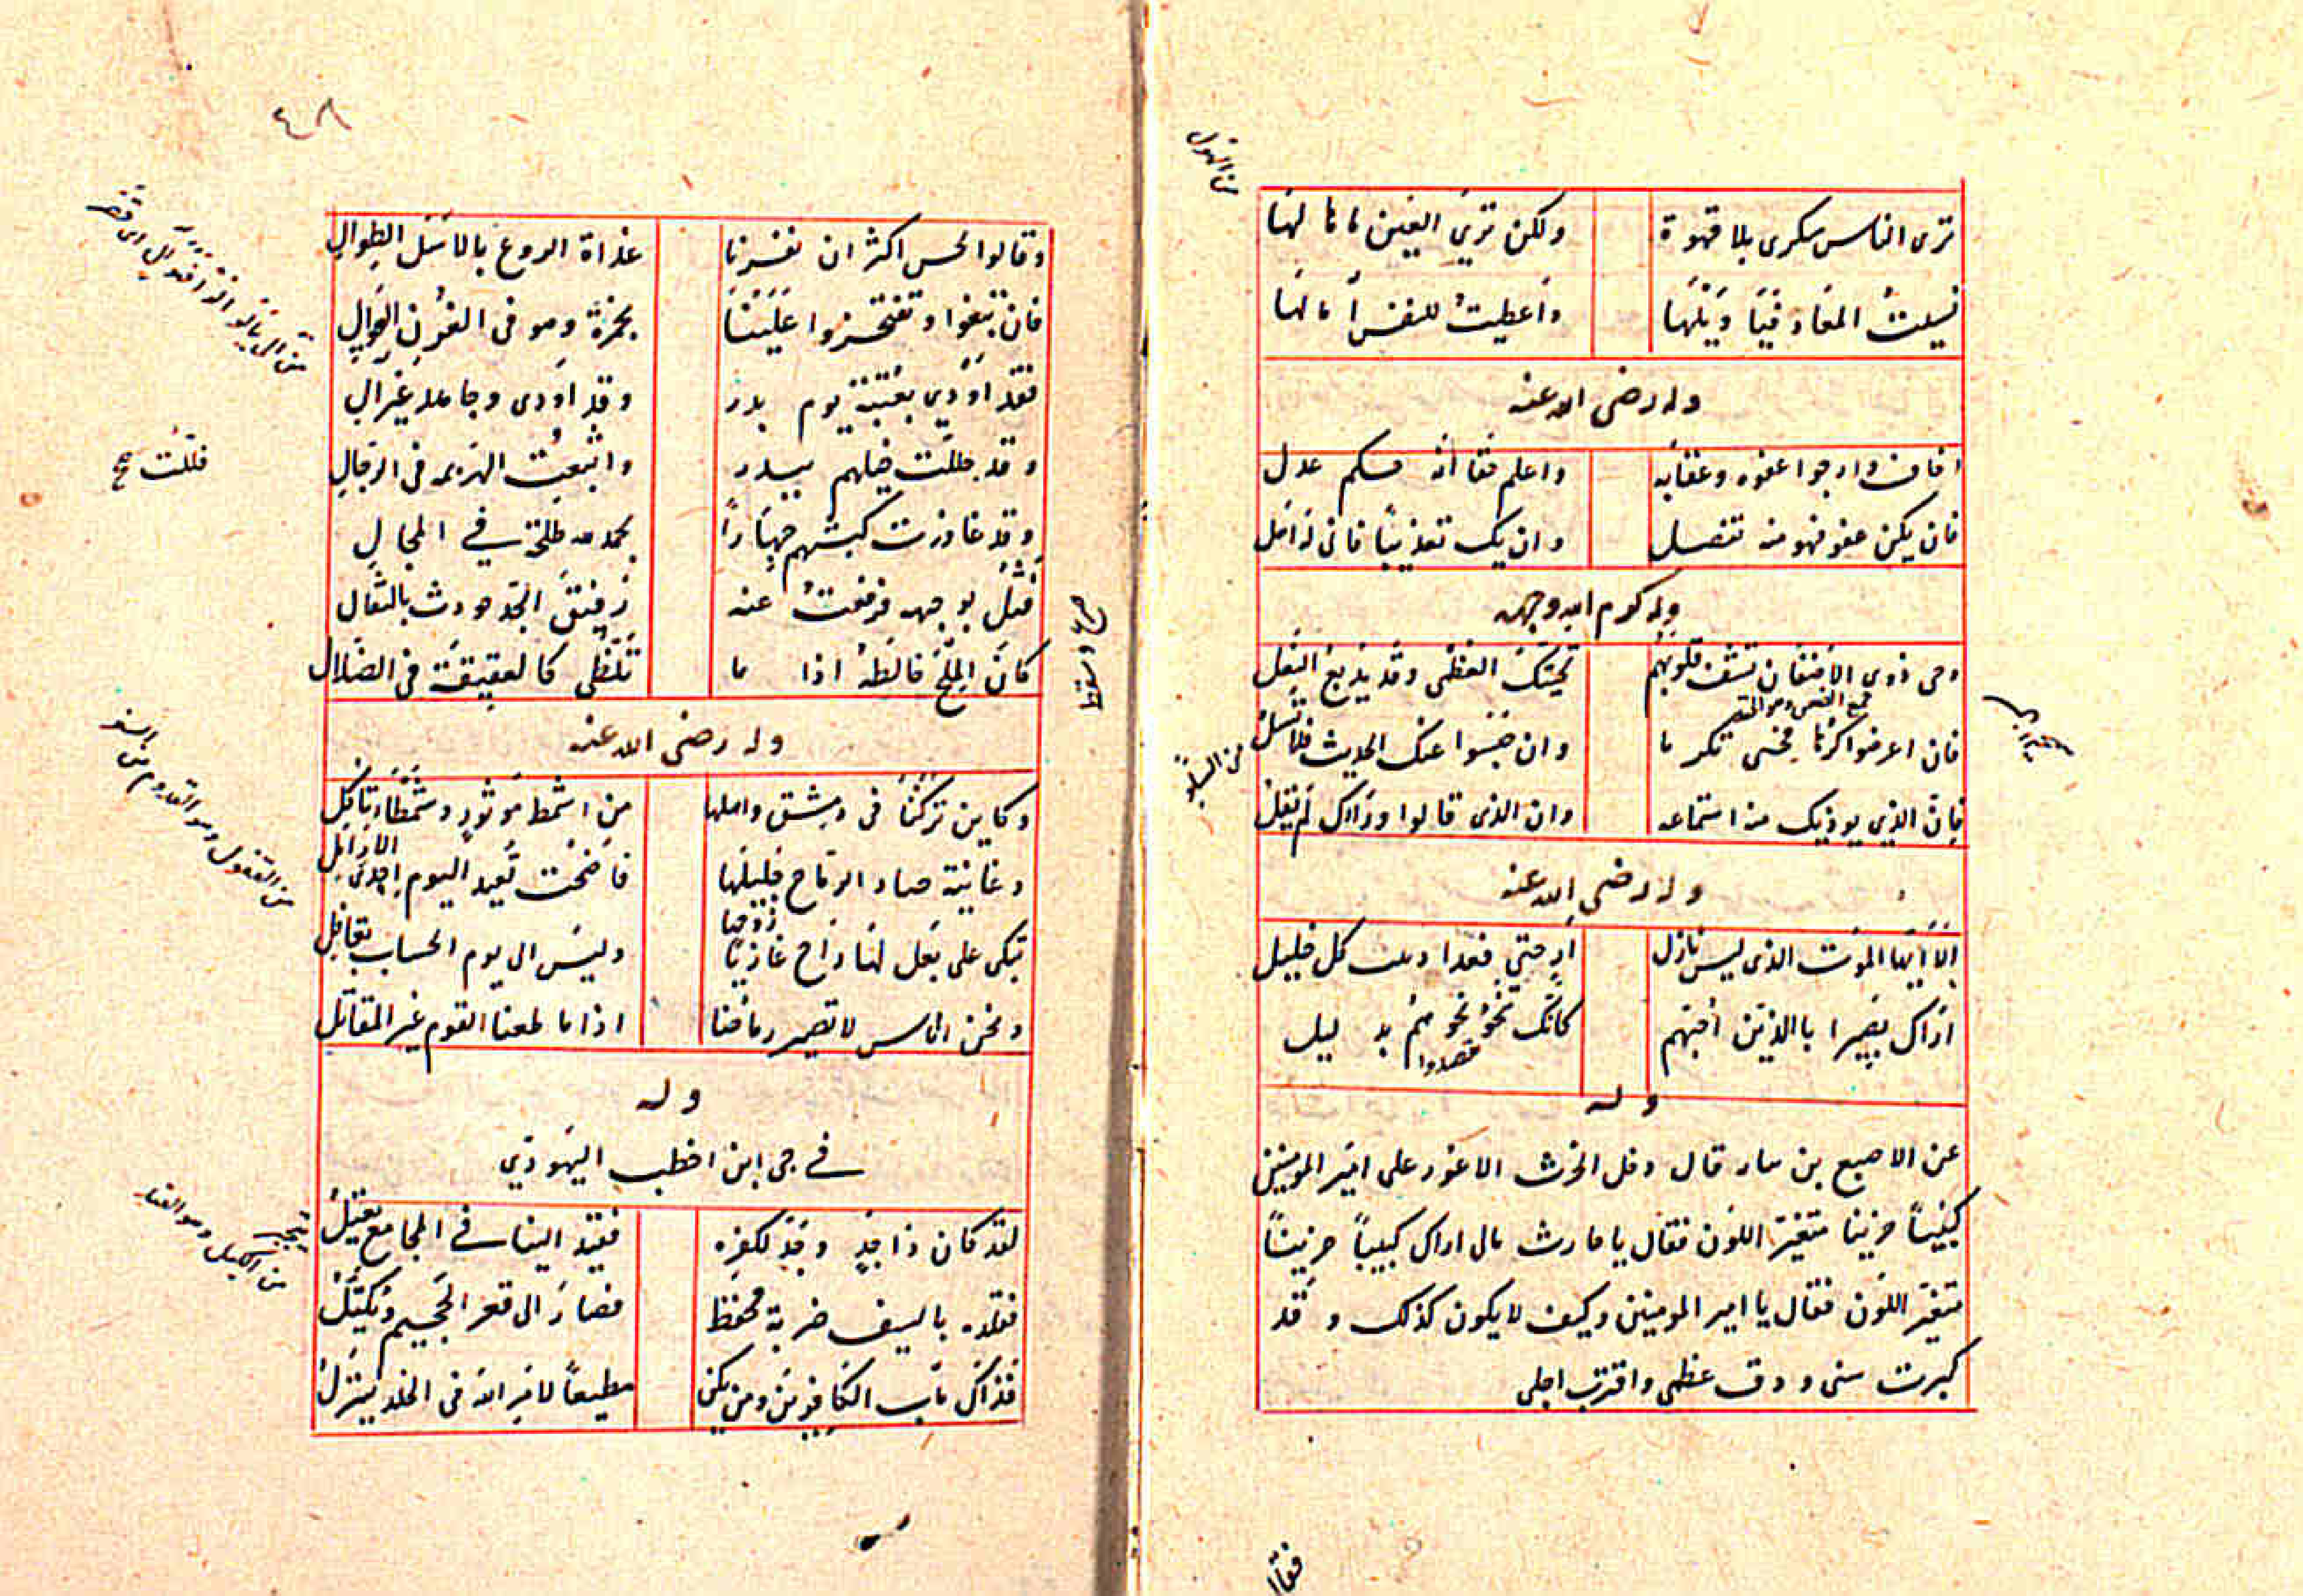 ترى الناس سكرى بلا قهوة ولكن ترى العين ما نا لها
نسيت المعاد فيا ويلها واعطيت للنفس امالها
وله رضى الله عنه
اخاف وارجوا عفوه وعقابه واعلم حقا انه حكم عدل
فان يكن عفو فهو منه تفضل وان يك تعذيبا فانى له اهل
وله كرم الله وجهه
وحى ذوى الاضغان تشف قلوبهم تحيتك العظمى وقد يدبغ النغل
فان اعرضوا كرها فحسى تكرما وان خنسوا عنك الحديث فلا تسل
فان الذي يوذيك منه استماعه وان الذى قالوا وراك لم يقل
وله رضى الله عنه
الا ايها الموت الذى ليس نازل ارحنى فقدا دمت كل خليل
اراك بصيرا بالذين احبهم كانك تنحو نحوهم بد ليل
قصدوا
وله
عن الاصبع بن ساد قال دخل الحرث الاعور على امير المومنين
كييبا حزينا متغير اللون فقال يا حارث مالى اراك كييبا حزينا
متغير اللون فقال يا امير المومنين وكيف لا يكون كذلك وقد
كبرت سنى ودق عظمى واقترب اجلى
فقال
٤٨
وقالوا لحن اكثر ان نفرنا غداة الروع بالاسل الطوال
فان تبغوا وتفتخروا علينا بحمزة وهو فى الغرف العوالى
فقد اودى بعتبة يوم بدر وقد اودى وجاهد غير ال
وقد جللت خيلهم ببدر واتبعت الهزيمه فى الرجال
وقد غادرت كبشهم جهارا بحمد الله طلحة في المجال
فتل بوجهه فرفعت عنه رفيق الحد حودث بالصقال
كان الملح خالطه اذا ما تلظى كالعقيقة فى الضلال
وله رضى الله عنه
وكاين تركنا فى دمشق واهلها من اشمط موثور وشمطاء ثاكل
وغانية صاد الرماح خليلها فاضحت تعيد اليوم احدى الارامل
زوجها
تبكى على بعل لها راح غازيا وليس الى يوم الحساب بقافل
ونحن اناس لا تصير رماحنا اذا ما طعنا القوم غير المقاتل
وله
في حى ابن اخطب اليهودي
لقد كان ذا جد وجد لكفره فقيد الينا في المجامع يعتل
فقلده بالسيف ضربة محفظ فصار الى قعر الجحيم وتكبل
فذاك ماب الكافرين ومن يكن مطيعا لامر الله فى الخلد ينزل
فللت صح